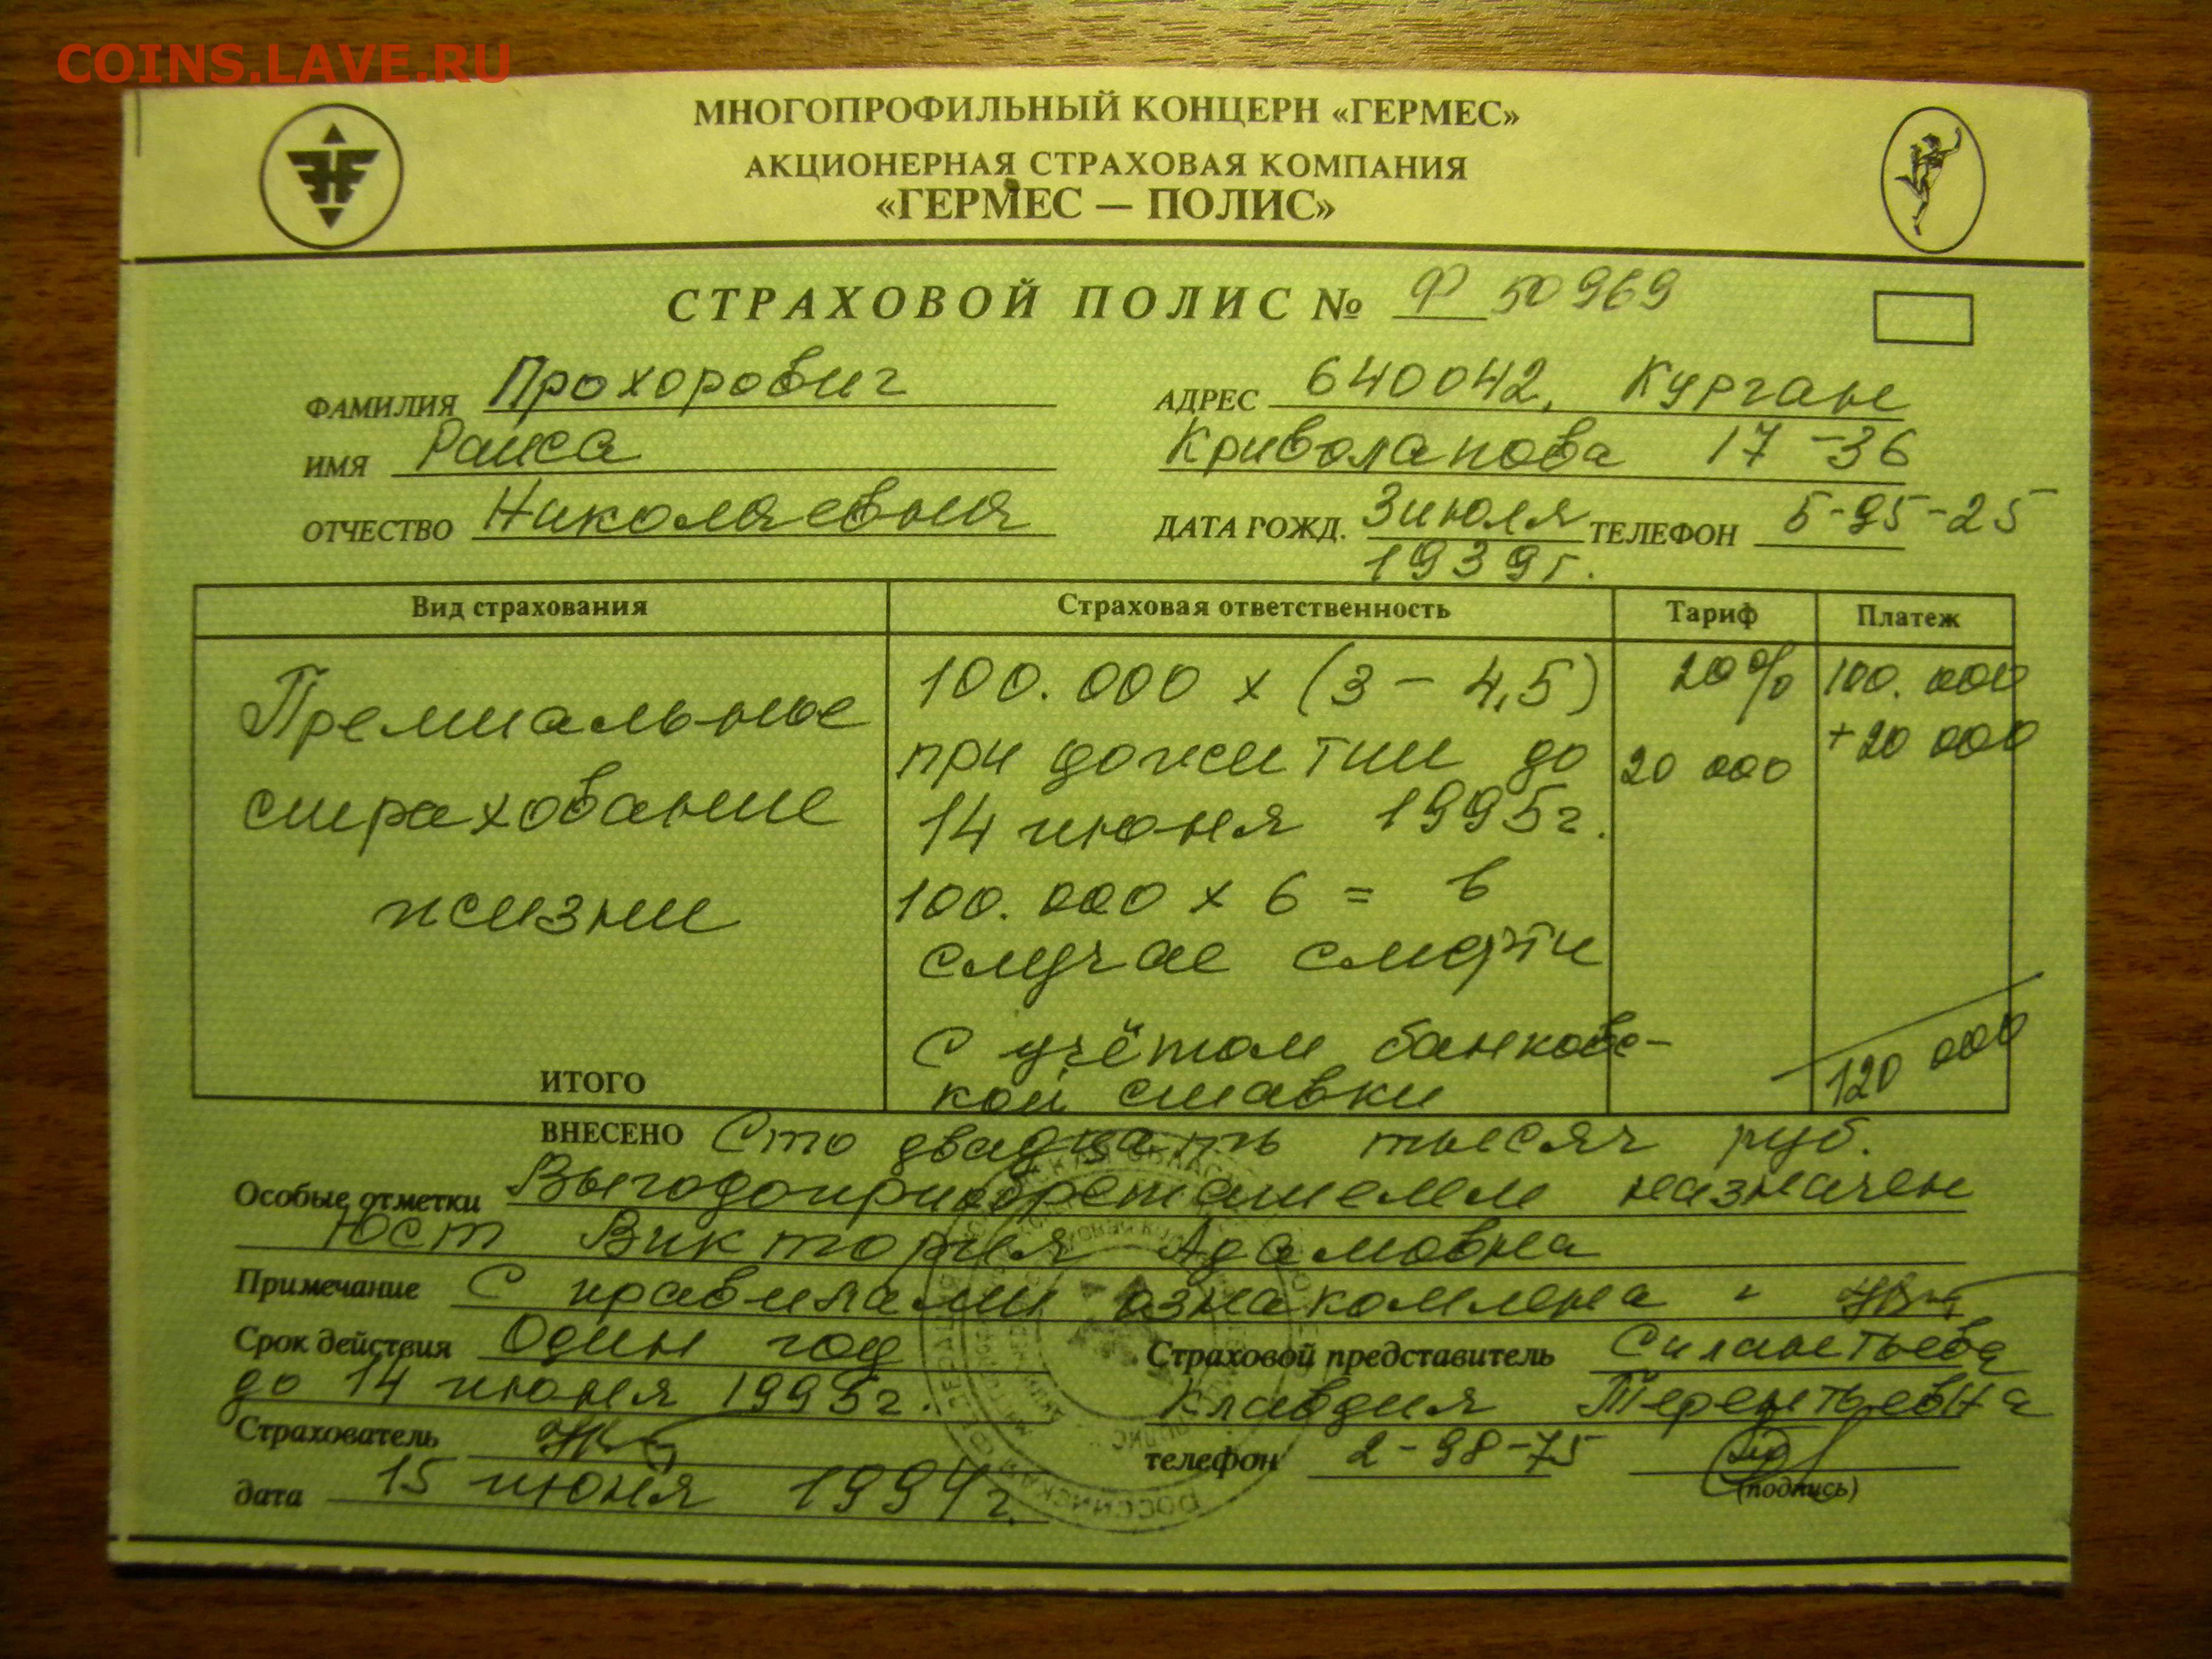 COINS.LAVE.RU
МНОГОПРОФИЛЬНЫЙ КОНЦЕРН «ГЕРМЕС»
АКЦИОНЕРНАЯ СТРАХОВАЯ КОМПАНИЯ
«ГЕРМЕС — ПОЛИС»
СТРАХОВОЙ ПОЛИС № Ф 50969
ФАМИЛИЯ Прохорович
ИМЯ Раиса
ОТЧЕСТВО Николаевна
АДРЕС 640042, Курган
Криволапова 17-36
ДАТА РОЖД. 3 июля ТЕЛЕФОН 5-95-25
1939 г.
Вид страхования Страховая ответственность Тариф Платеж
Премиальное
страхование
жизни
100.000 х (3 - 4,5)
при дожитии до
14 июня 1995 г.
100.000 х 6 = в
случае смерти
С учётом банковс-
кой ставки
20%
20 000
100.000
+20 000
120 000
ИТОГО
ВНЕСЕНО Сто двадцать тысяч руб.
Особые отметки Выгодоприобретателем назначен
Юст Виктория Адамовна
Примечание С правилами ознакомлена -
Срок действия Один год
до 14 июня 1995 г.
Страхователь
дата 15 июня 1994 г.
Страховой представитель Силантьева
Клавдия Терентьевна
телефон 2-98-75
(подпись)